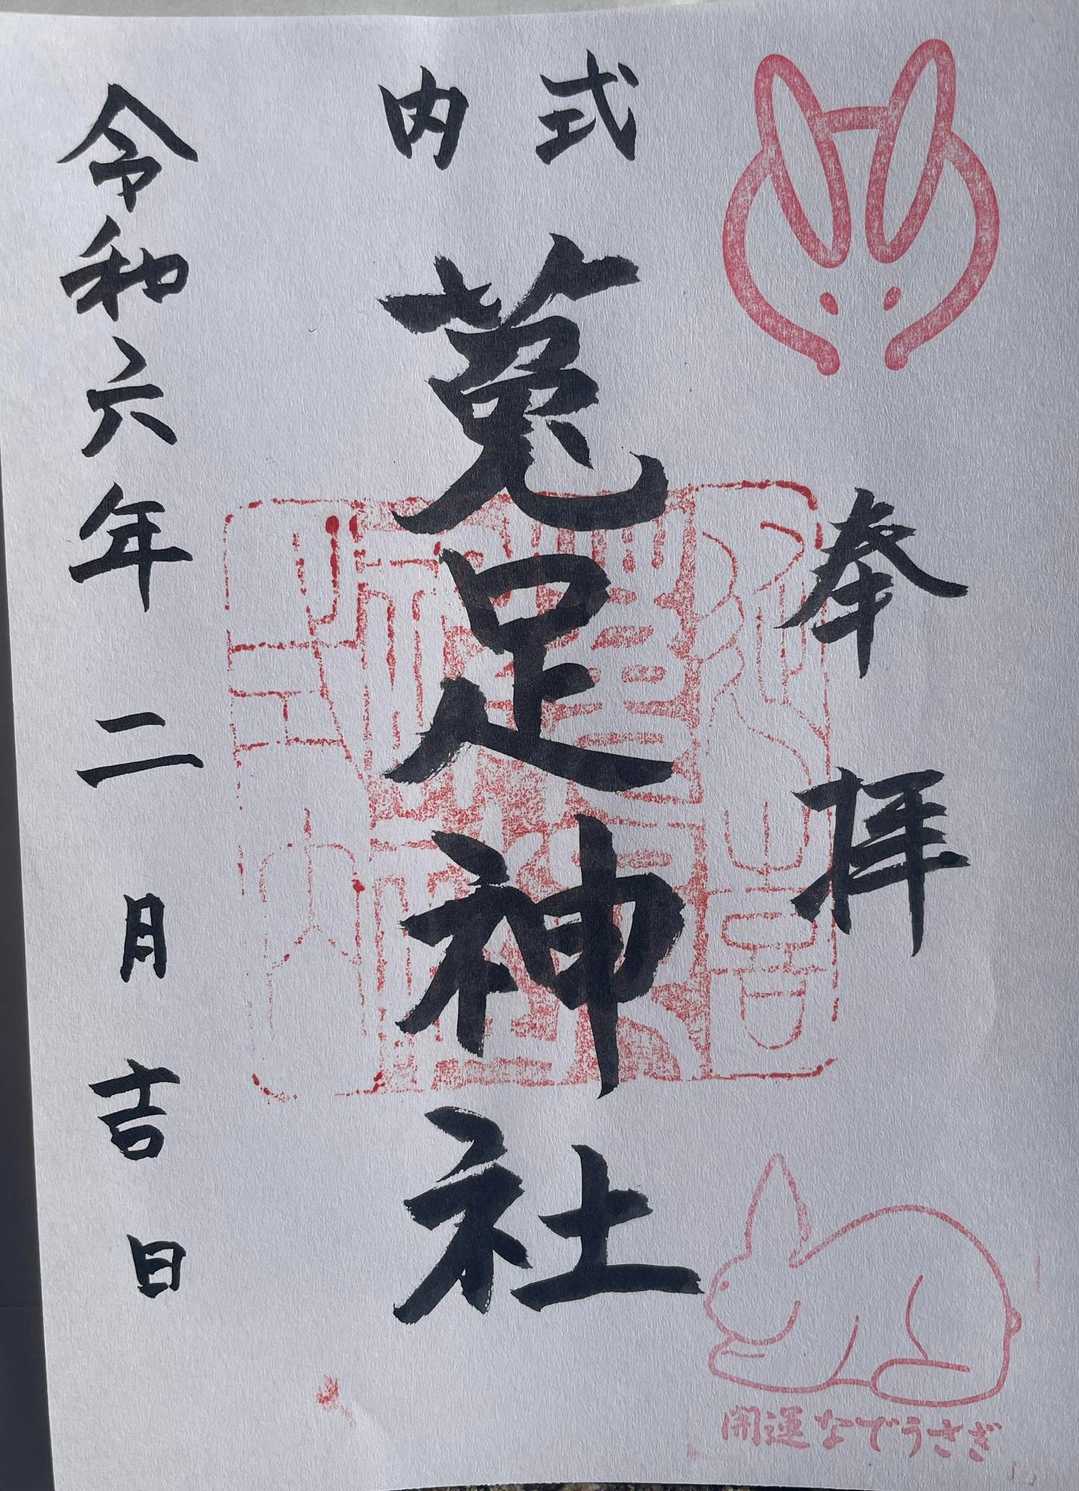 奉拝
式内
菟足神社
令和六年二月吉日
開運なでうさぎ